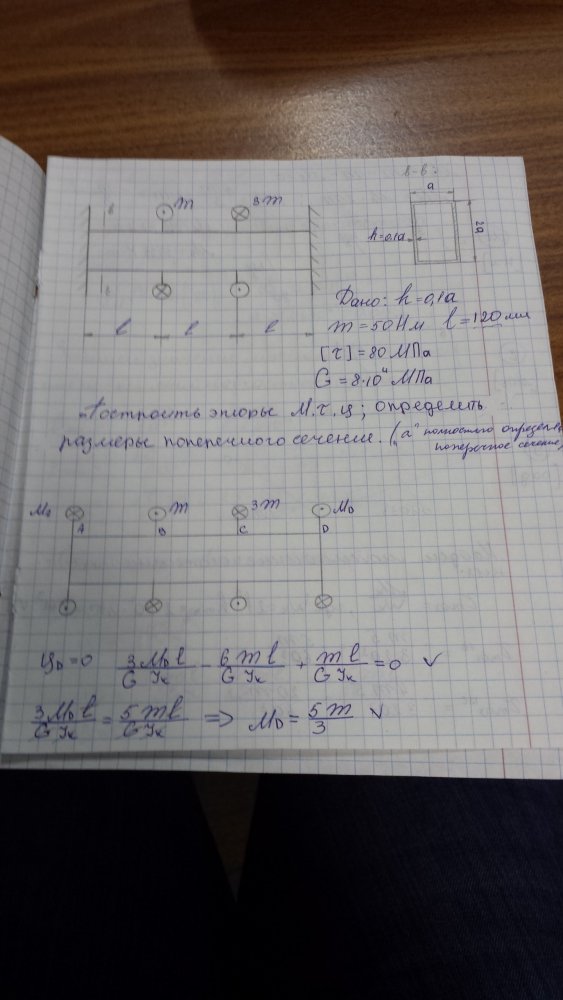 в-в.
a
m
3m
h=0,1a
2a
в
в
Дано: h=0,1a
l
l
l
m=50Нм l=120мм
[τ]=80 МПа
G=8·10⁴ МПа
Построить эпюры М.τ.φ; определить
размеры поперечного сечения. („a" полностью определ
поперечное сечение)
m
3m
M_D
A
B
C
D
φ_D=0 3M_Dl/GJ_к - 6ml/GJ_к + ml/GJ_к = 0 V
3M_Dl/GJ_к = 5ml/GJ_к => M_D = 5m/3 V